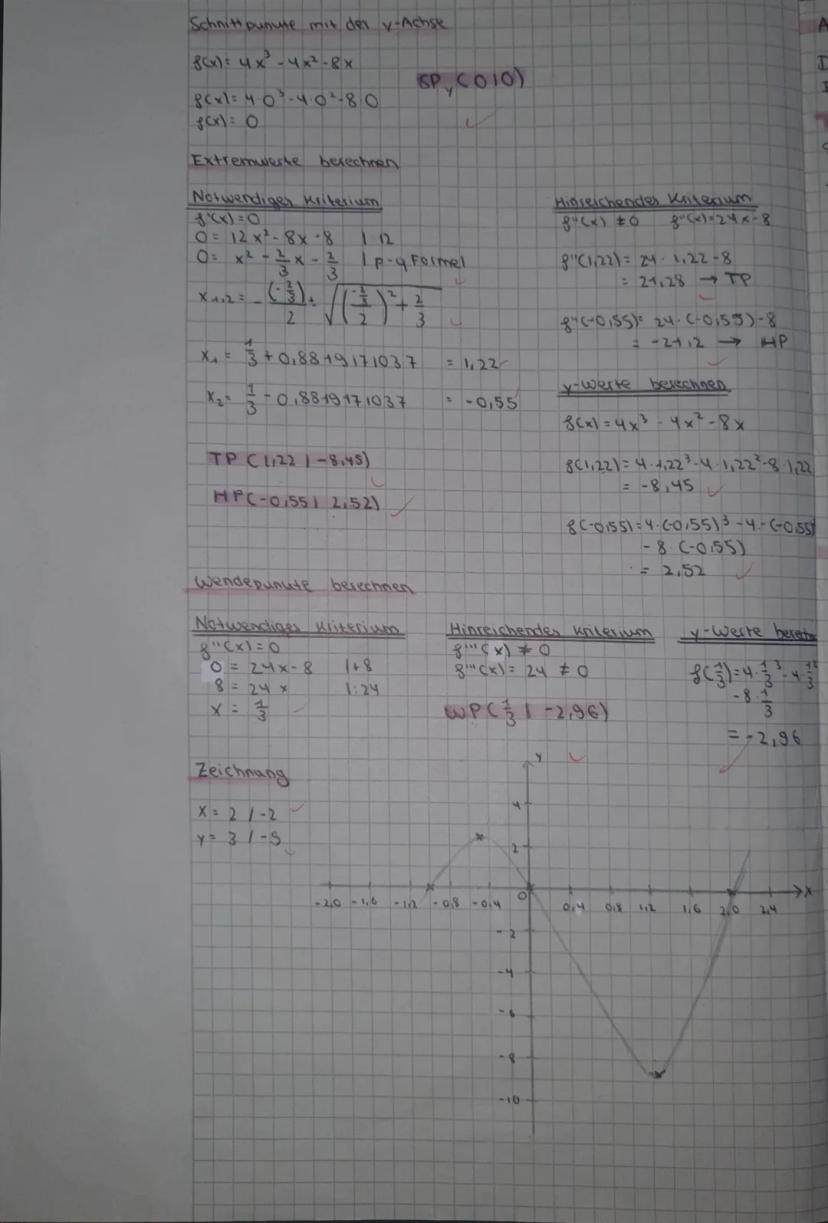 Schnittpunkte mit der y-Achse
f(x) = 4x³ - 4x² - 8x
SPy (0|0)
f(x) = 4·0³ - 4·0² - 8·0
f(x) = 0
Extremwerte berechnen
Notwendiges Kriterium
f'(x) = 0
0 = 12x² - 8x - 8 | 12
0 = x² - 2/3 x - 2/3 | p-q Formel
x1,2 = -(-2/3)/2 ± √((-2/3 / 2)² + 2/3)
x₁ = 1/3 + 0,8819171037 = 1,22
x₂ = 1/3 - 0,8819171037 = -0,55
TP (1,22 | -8,45)
HP (-0,55 | 2,52)
Hinreichendes Kriterium
f''(x) ≠ 0 f''(x) = 24x - 8
f''(1,22) = 24 · 1,22 - 8
= 21,28 → TP
f''(-0,55) = 24 · (-0,55) - 8
= -21,2 → HP
y-Werte berechnen
f(x) = 4x³ - 4x² - 8x
f(1,22) = 4·1,22³ - 4·1,22² - 8·1,22
= -8,45
f(-0,55) = 4·(-0,55)³ - 4·(-0,55)
- 8·(-0,55)
= 2,52
Wendepunkte berechnen
Notwendiges Kriterium
f''(x) = 0
0 = 24x - 8 | +8
8 = 24x | :24
x = 1/3
Hinreichendes Kriterium
f'''(x) ≠ 0
f'''(x) = 24 ≠ 0
WP (1/3 | -2,96)
y-Werte
f(1/3) = 4·1/3³ - 4·1/3²
- 8·1/3
= -2,96
Zeichnung
x = 2 / -2
y = 3 / -5
y
4
2
-2,0 -1,6 -1,2 -0,8 -0,4 0 0,4 0,8 1,2 1,6 2,0 2,4 x
-2
-4
-6
-8
-10